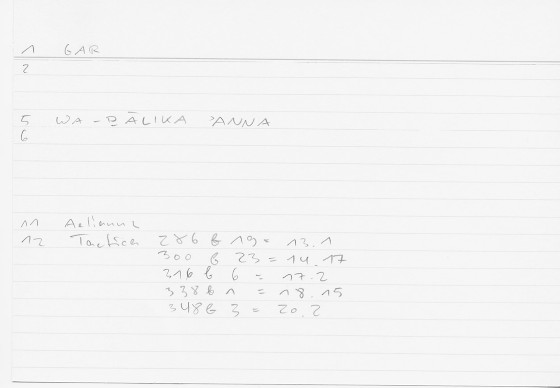 1 GAR
2
5 WA-ḎĀLIKA ʾANNA
6
11 Aelianus
12 Tactica 286 b 19 = 13.1
300 b 23 = 14.17
316 b 6 = 17.2
338 b 1 = 18.15
348 b 3 = 20.2